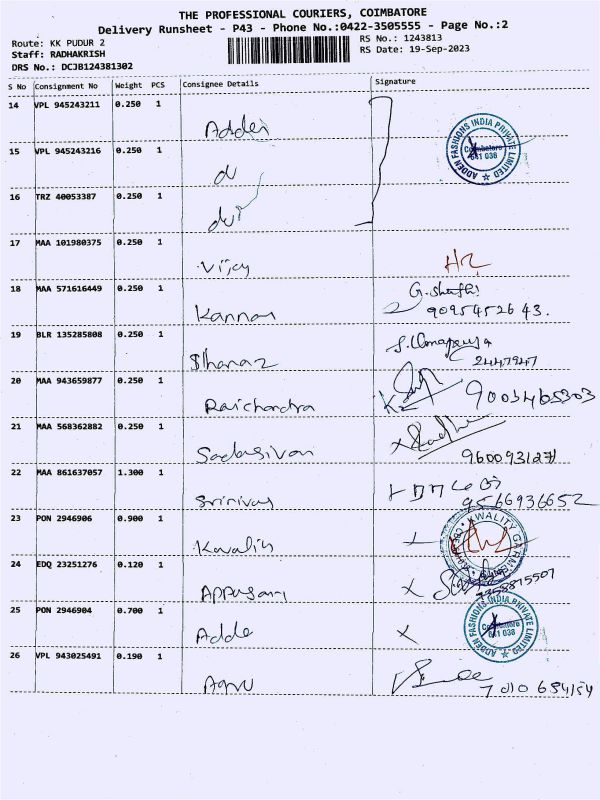 THE PROFESSIONAL COURIERS, COIMBATORE
Delivery Runsheet - P43 - Phone No.:0422-3505555 - Page No.:2
Route: KK PUDUR 2
Staff: RADHAKRISH
DRS No.: DCJB124381302
RS No.: 1243813
RS Date: 19-Sep-2023
S No Consignment No Weight PCS Consignee Details Signature
14 VPL 945243211 0.250 1
ADDEN FASHIONS INDIA PRIVATE LIMITED
Coimbatore
641 038
15 VPL 945243216 0.250 1
16 TRZ 40053387 0.250 1
17 MAA 101980375 0.250 1
Vijay
18 MAA 571616449 0.250 1
Kannan
9095452643.
19 BLR 135285808 0.250 1
2447947
20 MAA 943659877 0.250 1
Raichandra
9003465303
21 MAA 568362882 0.250 1
Sadasivan
22 MAA 861637057 1.300 1
Srinivas
9566936652
23 PON 2946906 0.900 1
KWALITY
24 EDQ 23251276 0.120 1
Appusamy
25 PON 2946904 0.700 1
Adde
ADDEN FASHIONS INDIA PRIVATE LIMITED
Coimbatore
641 038
26 VPL 943025491 0.190 1